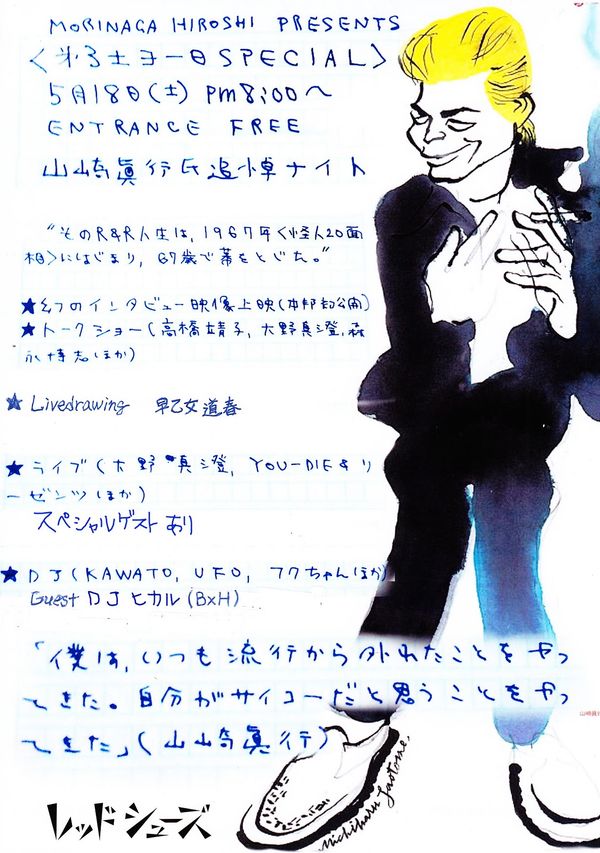 MORINAGA HIROSHI PRESENTS
<第3土ヨー日SPECIAL>
5月18日(土) pm8:00〜
ENTRANCE FREE
山崎眞行氏追悼ナイト
"そのR&R人生は、1967年<怪人20面
相>にはじまり、67歳で幕をとじた。"
★幻のインタビュー映像上映(本邦初公開)
★トークショー(高橋靖子、大野真澄、森
永博志ほか)
★Livedrawing 早乙女道春
★ライブ(大野真澄、YOU-DIE&リ
ーゼンツほか)
スペシャルゲストあり
★DJ(KAWATO, UFO, フクちゃんほか)
Guest DJ ヒカル(BxH)
「僕は、いつも流行から外れたことをやっ
てきた。自分がサイコーだと思うことをやっ
てきた」(山崎眞行)
Michiharu Saotome.
レッドシューズ